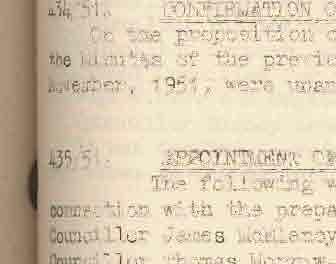 434/51. CONFIRMATION O
On the proposition o
the Minutes of the previo
November, 1951, were unan
435/51. APPOINTMENT O
The following w
connection with the prepa
Councillor James
Councillor Thomas